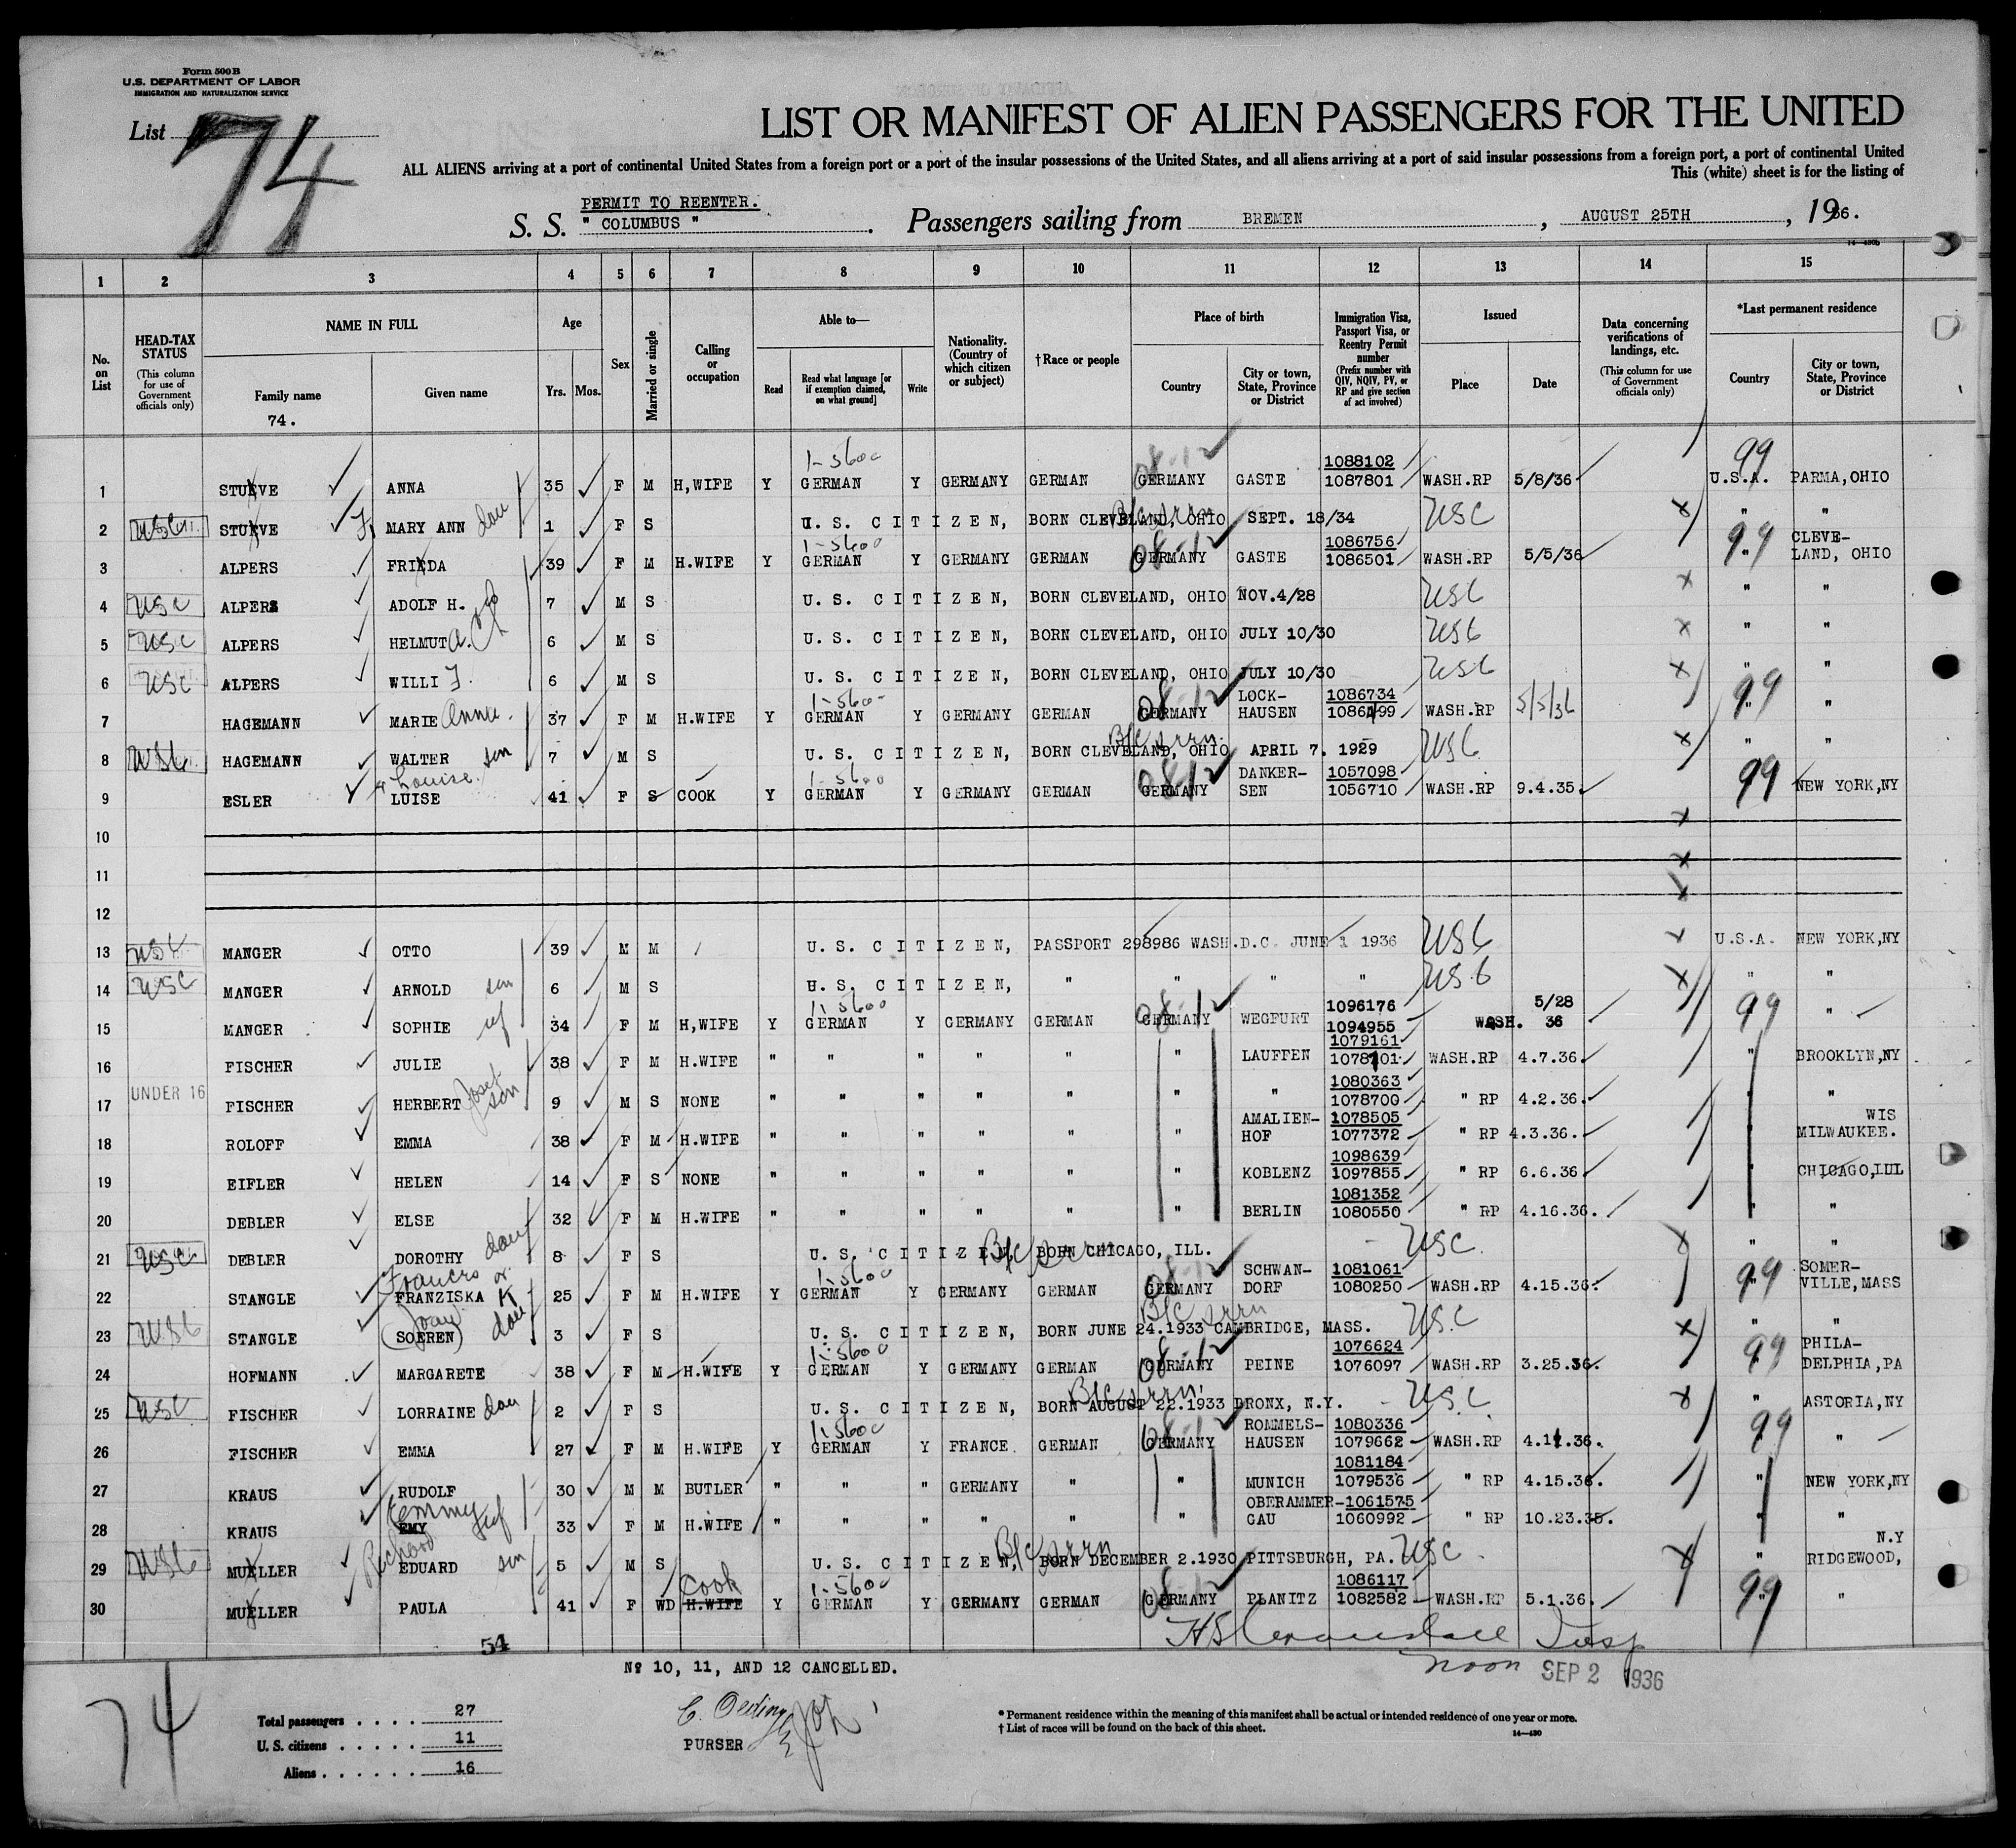 Form 500 B
U.S. DEPARTMENT OF LABOR
IMMIGRATION AND NATURALIZATION SERVICE
List 74
LIST OR MANIFEST OF ALIEN PASSENGERS FOR THE UNITED
ALL ALIENS arriving at a port of continental United States from a foreign port or a port of the insular possessions of the United States, and all aliens arriving at a port of said insular possessions from a foreign port, a port of continental United
This (white) sheet is for the listing of
PERMIT TO REENTER.
S. S. " COLUMBUS " . Passengers sailing from BREMEN , AUGUST 25TH , 1936.
14—480b
1 2 3 4 5 6 7 8 9 10 11 12 13 14 15
No. on List
HEAD-TAX STATUS (This column for use of Government officials only)
NAME IN FULL Family name Given name
74.
Age Yrs. Mos.
Sex
Married or single
Calling or occupation
Able to— Read Read what language [or if exemption claimed, on what ground] Write
Nationality. (Country of which citizen or subject)
†Race or people
Place of birth Country City or town, State, Province or District
Immigration Visa, Passport Visa, or Reentry Permit number (Prefix number with QIV, NQIV, PV, or RP and give section of act involved)
Issued Place Date
Data concerning verifications of landings, etc. (This column for use of Government officials only)
*Last permanent residence Country City or town, State, Province or District
1-5600 08-12 1088102 99
1 STUEVE ANNA 35 F M H,WIFE Y GERMAN Y GERMANY GERMAN GERMANY GASTE 1087801 WASH.RP 5/8/36 U.S.A. PARMA,OHIO
2 USC STUEVE F. MARY ANN dau 1 F S U. S. CITIZEN, BORN CLEVELAND, OHIO SEPT. 18/34 USC " "
1-5600 08-12 1086756 99 CLEVE-
3 ALPERS FRIEDA 39 F M H.WIFE Y GERMAN Y GERMANY GERMAN GERMANY GASTE 1086501 WASH.RP 5/5/36 " LAND, OHIO
4 USC ALPERS ADOLF H. 7 M S U. S. CITIZEN, BORN CLEVELAND, OHIO NOV.4/28 USC " "
5 USC ALPERS HELMUT A. 6 M S U. S. CITIZEN, BORN CLEVELAND, OHIO JULY 10/30 USC " "
6 USC ALPERS WILLI F. 6 M S U. S. CITIZEN, BORN CLEVELAND, OHIO JULY 10/30 USC " "
1-5600 08-12 LOCK- 1086734 99
7 HAGEMANN MARIE Anna. 37 F M H.WIFE Y GERMAN Y GERMANY GERMAN GERMANY HAUSEN 1086499 WASH.RP 5/5/36 " "
8 USC HAGEMANN WALTER son 7 M S U. S. CITIZEN, BORN CLEVELAND, OHIO APRIL 7. 1929 USC " "
Louise. 1-5600 08-12 DANKER- 1057098 99
9 ESLER LUISE 41 F S COOK Y GERMAN Y GERMANY GERMAN GERMANY SEN 1056710 WASH.RP 9.4.35. NEW YORK,NY
10
11
12
13 USC MANGER OTTO 39 M M U. S. CITIZEN, PASSPORT 298986 WASH.D.C. JUNE 1 1936 USC U.S.A. NEW YORK,NY
14 USC MANGER ARNOLD son 6 M S U. S. CITIZEN, " " " " USC " "
1-5600 08-12 1096176 5/28 99
15 MANGER SOPHIE wf 34 F M H,WIFE Y GERMAN Y GERMANY GERMAN GERMANY WEGFURT 1094955 WASH. 36 "
1079161
16 FISCHER JULIE 38 F M H.WIFE " " " " " " LAUFFEN 1078101 WASH.RP 4.7.36. " BROOKLYN,NY
UNDER 16 Josef 1080363
17 FISCHER HERBERT son 9 M S NONE " " " " " " " 1078700 " RP 4.2.36. "
AMALIEN- 1078505 WIS
18 ROLOFF EMMA 38 F M H.WIFE " " " " " " HOF 1077372 " RP 4.3.36. MILWAUKEE.
1098639
19 EIFLER HELEN 14 F S NONE " " " " " " KOBLENZ 1097855 " RP 6.6.36 CHICAGO,ILL
1081352
20 DEBLER ELSE 32 F M H.WIFE " " " " " " BERLIN 1080550 " RP 4.16.36. "
21 USC DEBLER DOROTHY dau 8 F S U. S. CITIZEN, BORN CHICAGO, ILL. USC " "
Frances or 1-5600 08-12 SCHWAN- 1081061 99 SOMER-
22 STANGLE FRANZISKA K 25 F M H.WIFE Y GERMAN Y GERMANY GERMAN GERMANY DORF 1080250 WASH.RP 4.15.36. " VILLE,MASS
Joan
23 USC STANGLE (SOEREN) dau 3 F S U. S. CITIZEN, BORN JUNE 24.1933 CAMBRIDGE, MASS. USC " "
1-5600 08-12 1076624 99 PHILA-
24 HOFMANN MARGARETE 38 F M H.WIFE Y GERMAN Y GERMANY GERMAN GERMANY PEINE 1076097 WASH.RP 3.25.36. " DELPHIA,PA
25 USC FISCHER LORRAINE dau 2 F S U. S. CITIZEN, BORN AUGUST 22.1933 BRONX, N.Y. USC " ASTORIA,NY
1-5600 08-12 ROMMELS- 1080336 99
26 FISCHER EMMA 27 F M H.WIFE Y GERMAN Y FRANCE GERMAN GERMANY HAUSEN 1079662 WASH.RP 4.11.36. " "
1081184
27 KRAUS RUDOLF 30 M M BUTLER " " " GERMANY " " MUNICH 1079536 " RP 4.15.36. " NEW YORK,NY
Emmy OBERAMMER- 1061575
28 KRAUS EMY wf 33 F M H.WIFE " " " " " " GAU 1060992 " RP 10.23.35. " "
Richard N.Y
29 USC MUELLER EDUARD son 5 M S U. S. CITIZEN, BORN DECEMBER 2.1930 PITTSBURGH, PA. USC " RIDGEWOOD,
Cook 1-5600 08-12 1086117 99
30 MUELLER PAULA 41 F WD H.WIFE Y GERMAN Y GERMANY GERMAN GERMANY PLANITZ 1082582 WASH.RP 5.1.36. " "
54
Insp
No 10, 11, AND 12 CANCELLED.
noon SEP 2 1936
74
Total passengers . . . . 27
U. S. citizens . . . . . 11
Aliens . . . . . . 16
PURSER
* Permanent residence within the meaning of this manifest shall be actual or intended residence of one year or more.
† List of races will be found on the back of this sheet.
14—430